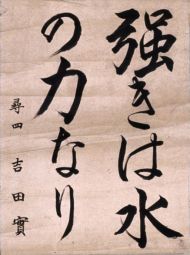 強きは水
の力なり
尋四 吉田實